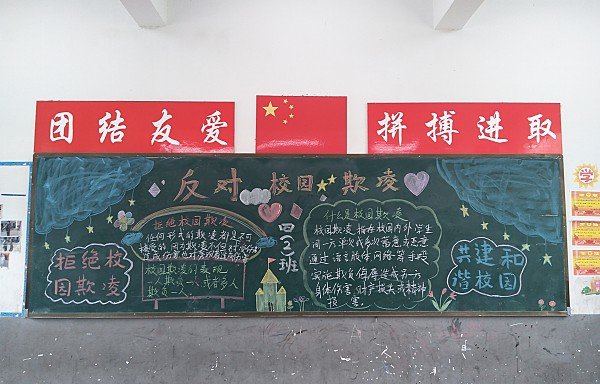 团结友爱
拼搏进取
反对校园欺凌
拒绝校园欺凌
任何形式的欺凌都是不可
接受的
校园欺凌的表现
一人欺负一人或者多人
欺负
拒绝校
园欺凌
四2班
什么是校园欺凌
校园欺凌指在校园内外学生
间一方单次或多次蓄意或恶意
通过语言肢体网络等手段
实施欺负侮辱造成另一方
身体伤害财产损失或精神
损害
共建和
谐校园